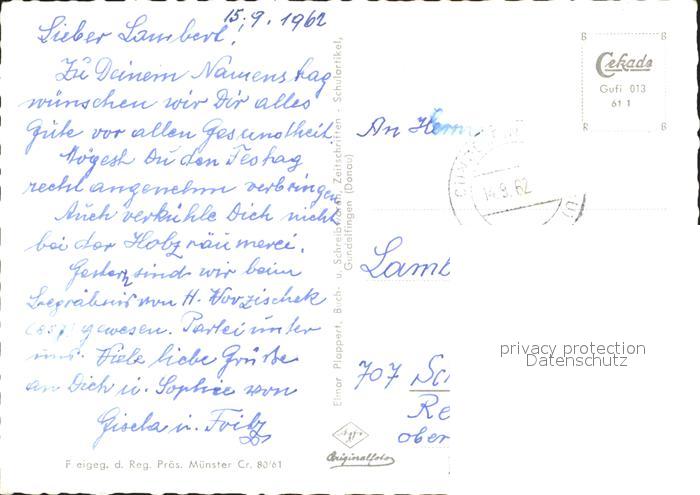 15.9.1962
Lieber Lambert!
Zu Deinem Namenstag
wünschen wir Dir alles
Gute vor allen Gesundheit.
Mögest Du den Festtag
recht angenehm verbringen
Auch verkühle Dich nicht
bei der Holzräumerei.
Gestern sind wir beim
Begräbnis von H.
gewesen. Partei unter
uns. Viele liebe Grüße
an Dich u. Sophie von
Gisela u. Fritz
Freigeg. d. Reg. Präs. Münster Cr. 80/61
Elmar Plappert, Buch- u. Schreibwaren, Zeitschriften - Schulartikel,
Gundelfingen (Donau)
Cekade
Gufi 013
61 1
An Herrn
14.9.62
Lamb
707 Sc
Re
ober
Agfa
Originalfoto
privacy protection
Datenschutz